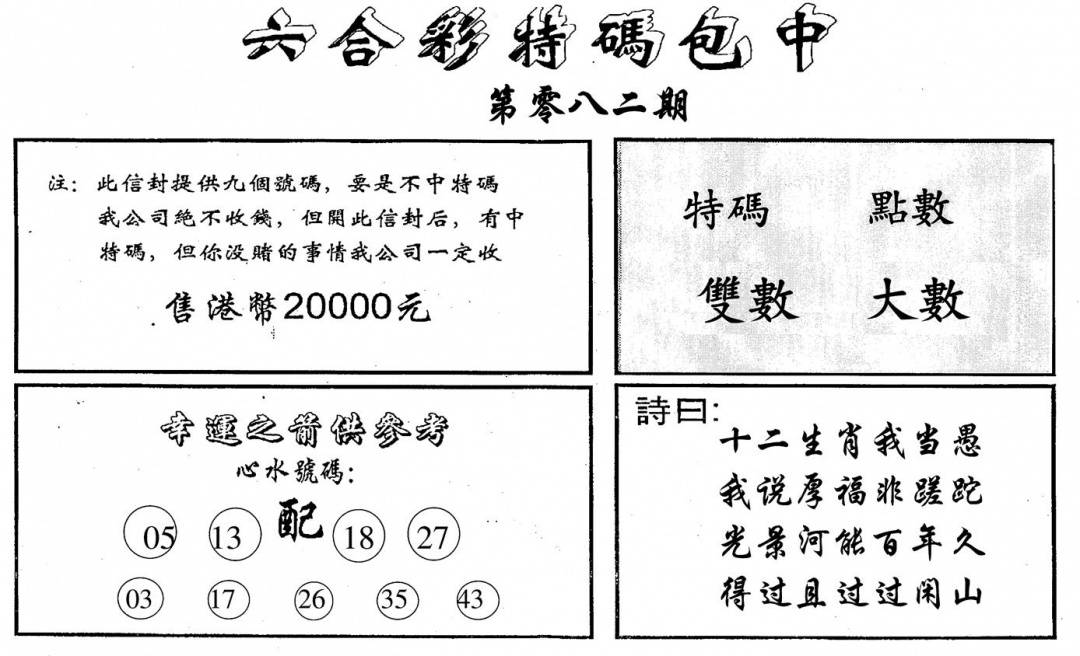 六合彩特碼包中
第零八二期
注：此信封提供九個號碼，要是不中特碼
我公司絕不收錢，但開此信封后，有中
特碼，但你没賭的事情我公司一定收
售港幣20000元
特碼 點數
雙數 大數
幸運之箭供參考
心水號碼：
05 13 配 18 27
03 17 26 35 43
詩曰：
十二生肖我当愚
我说厚福非蹉跎
光景河能百年久
得过且过过闲山